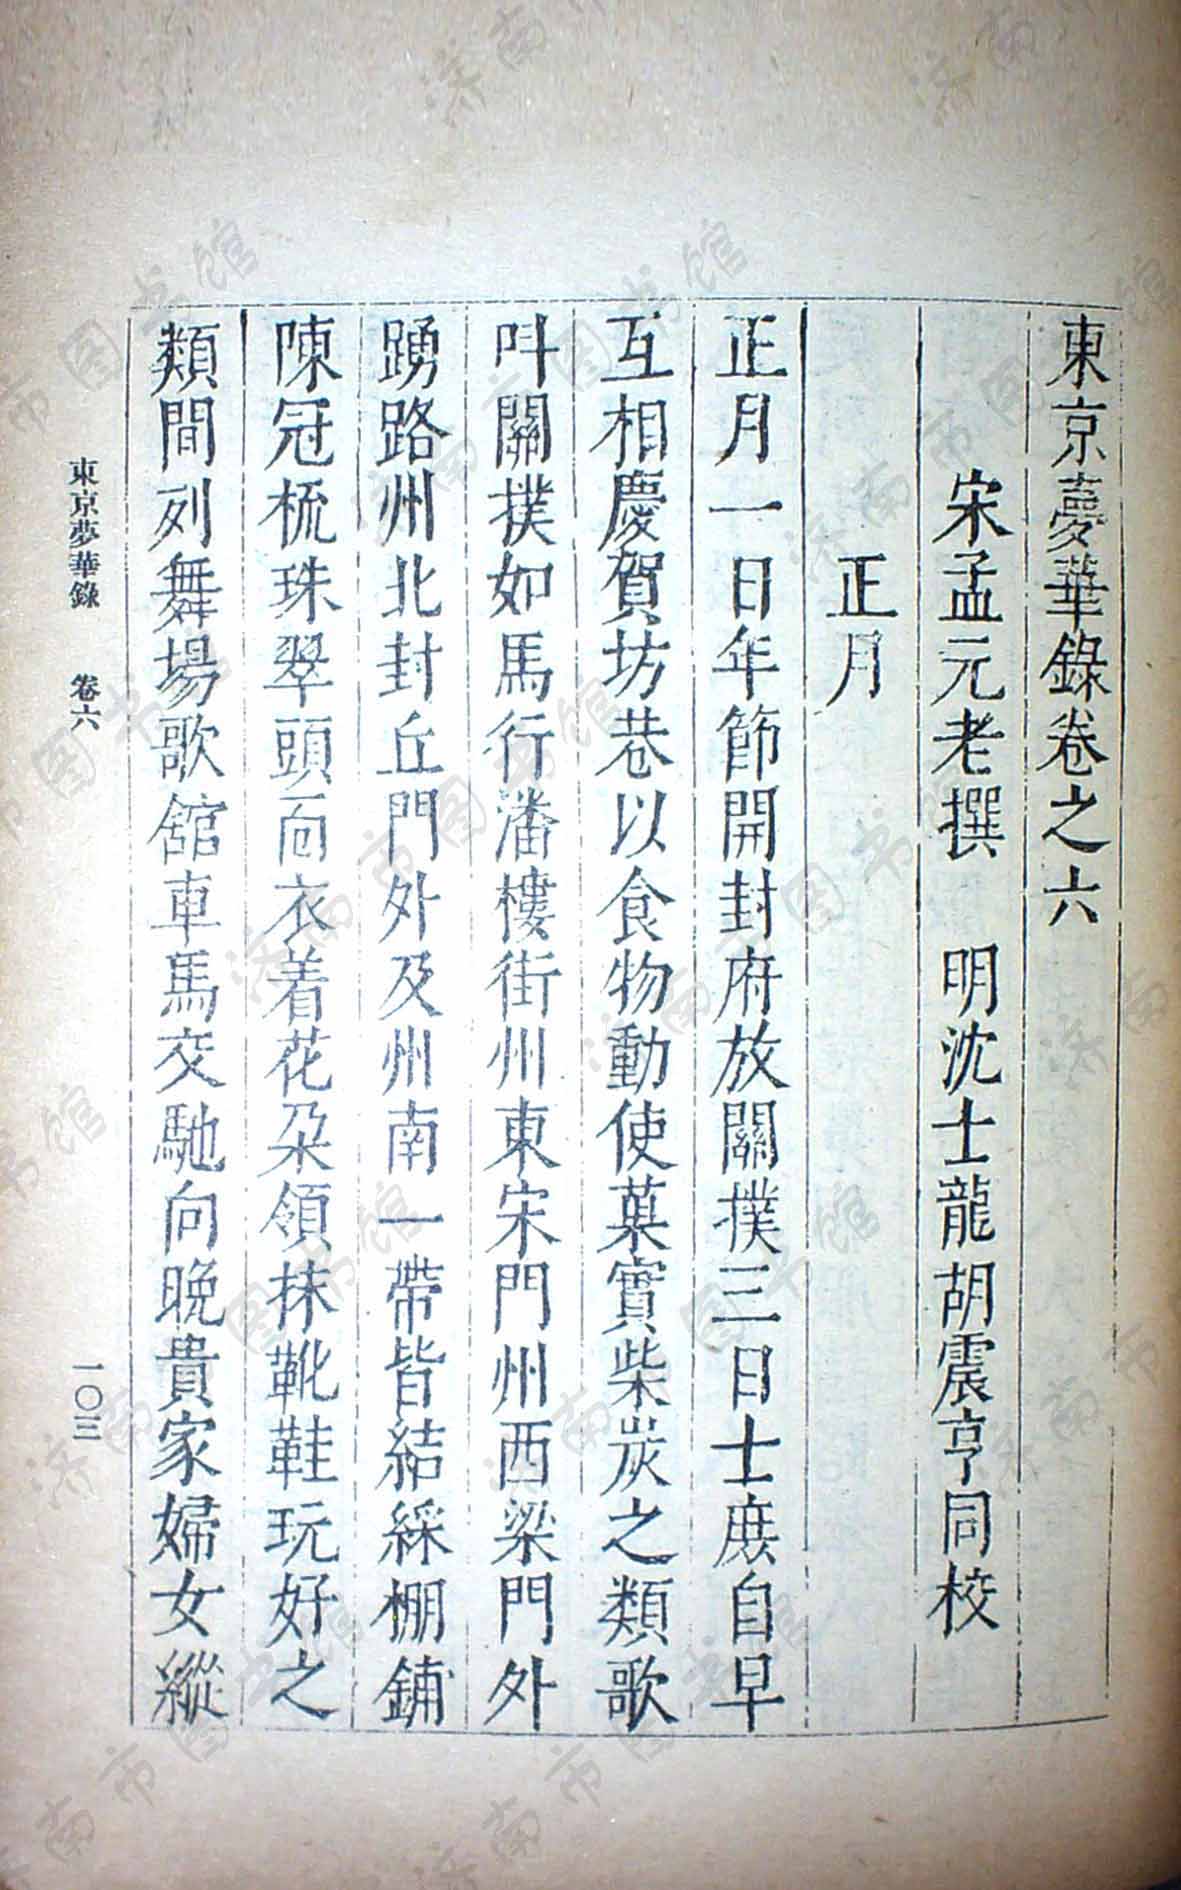 東京夢華錄卷之六
宋孟元老撰　明沈士龍胡震亨同校
正月
正月一日年節開封府放關撲三日士庶自早
互相慶賀坊巷以食物動使菓實柴炭之類歌
叫關撲如馬行潘樓街州東宋門州西梁門外
踴路州北封丘門外及州南一帶皆結綵棚鋪
陳冠梳珠翠頭面衣着花朵領抹靴鞋玩好之
類間列舞場歌舘車馬交馳向晚貴家婦女縱
東京夢華錄　卷六
一〇三
济南市图书馆